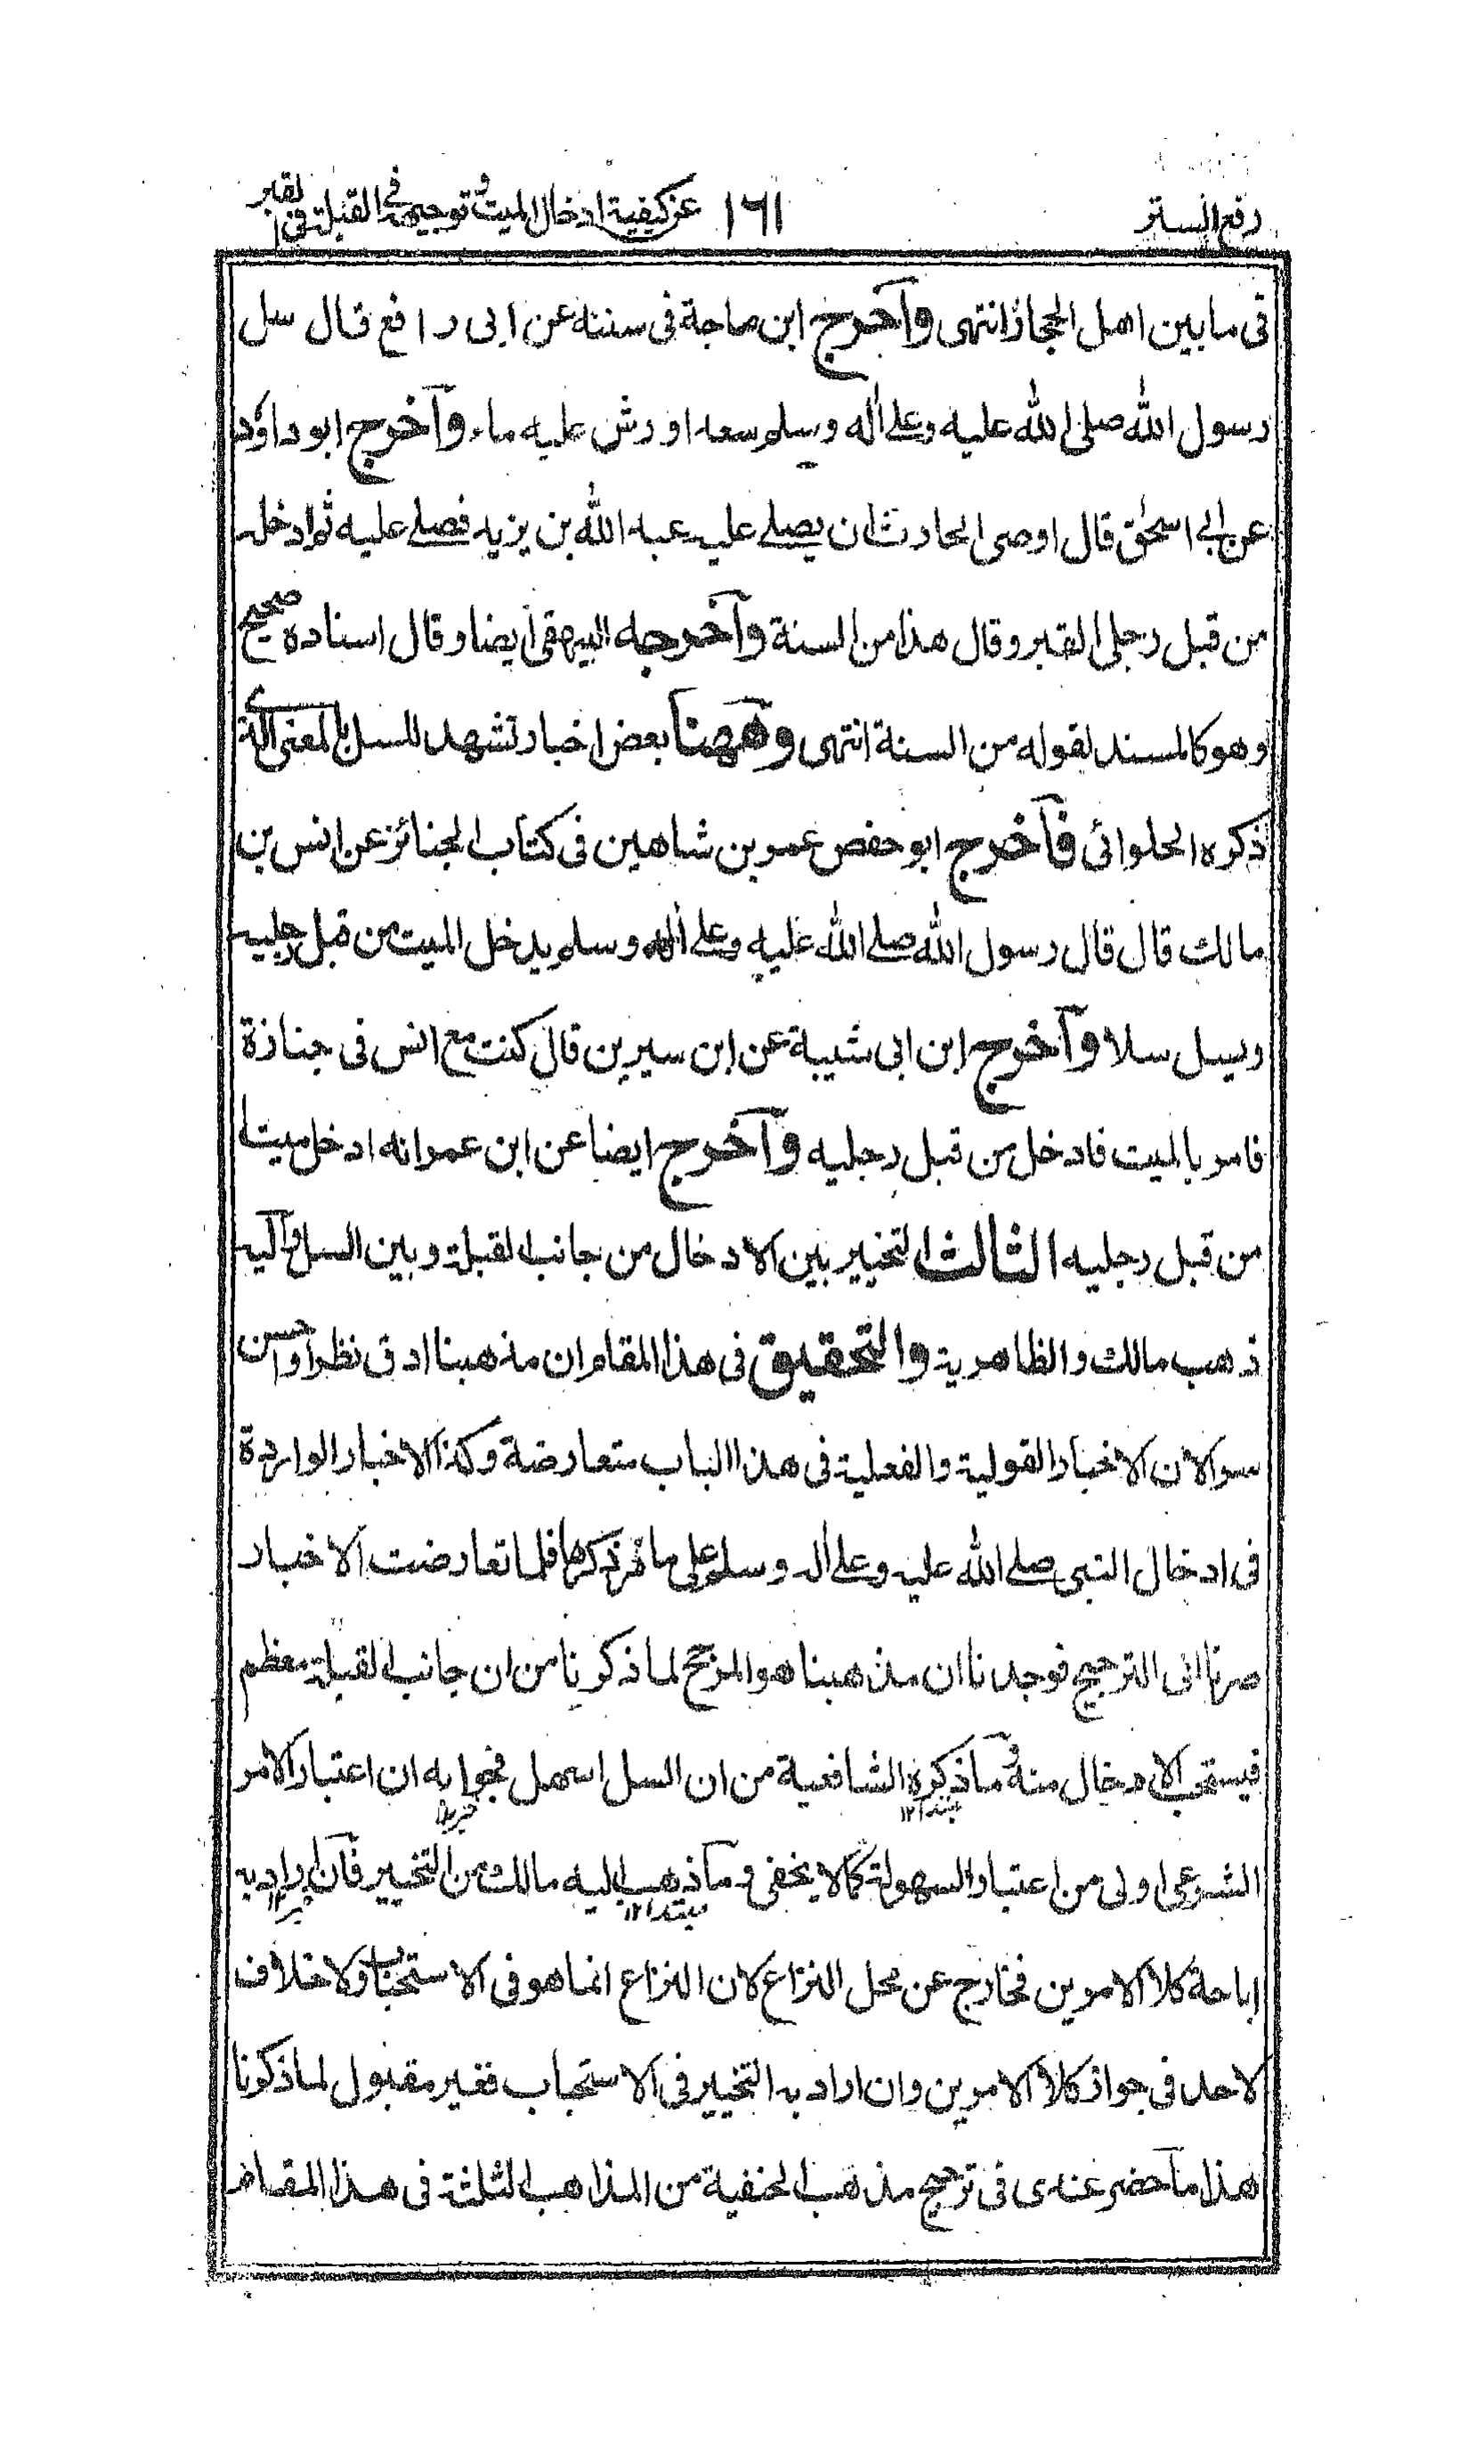 رفع الستر
١٦١
عن كيفية ادخال الميت وتوجيهه الى القبلة فى القبر
فى ما بين اهل الحجاز انتهى وآخرج ابن ماجة فى سننه عن ابى رافع قال سل
رسول الله صلى الله عليه وعلى اله وسلم سعد او رش عليه ماء وآخرج ابو داؤد
عن ابي اسحٰق قال اوصى الحارث ان يصلے عليه عبد الله بن يزيد فصلے عليه ثم ادخله
من قبل رجلى القبر وقال هذا من السنة وآخرجه البيهقى ايضا وقال اسناده صحيح
وهو كالمسند لقوله من السنة انتهى وههنا بعض اخبار تشهد للسل بالمعنى الذى
ذكره الحلوائى فآخرج ابو حفص عمر بن شاهين فى كتاب الجنائز عن انس بن
مالك قال قال رسول الله صلے الله عليه وعلے اله وسلم يدخل الميت من قبل رجليه
ويسل سلا وآخرج ابن ابى شيبة عن ابن سيرين قال كنت مع انس فى جنازة
فامر بالميت فادخل من قبل رجليه وآخرج ايضا عن ابن عمر انه ادخل ميتا
من قبل رجليه الثالث التخيير بين الادخال من جانب القبلة وبين السل وآليه
ذهب مالك والظاهرية والتحقيق فى هذا المقام ان مذهبنا ادق نظرا واحسن
سرا لان الاخبار القولية والفعلية فى هذا الباب متعارضة وكذا الاخبار الواردة
فى ادخال النبى صلے الله عليه وعلے اله وسلم على ما مر ذكرها فلما تعارضت الاخبار
صرنا الى الترجيح فوجدنا ان مذهبنا هو المرجح لما ذكرنا من ان جانب القبلة معظم
فيستحب الادخال منه وما ذكره الشافعية من ان السل اسهل فجوابه ان اعتبار الامر
مبتدا١٢
خبر١٢
الشرعى اولى من اعتبار السهولة كما لا يخفى وما ذهب اليه مالك من التخيير فان اراد به
مبتدا١٢
خبر١٢
اباحة كلا الامرين فخارج عن محل النزاع لان النزاع انما هو فى الاستحباب ولا خلاف
لاحد فى جواز كلا الامرين وان اراد به التخيير فى الاستحباب فغير مقبول لما ذكرنا
هذا ما حضر عندى فى ترجيح مذهب الحنفية من المذاهب الثلثة فى هذا المقام